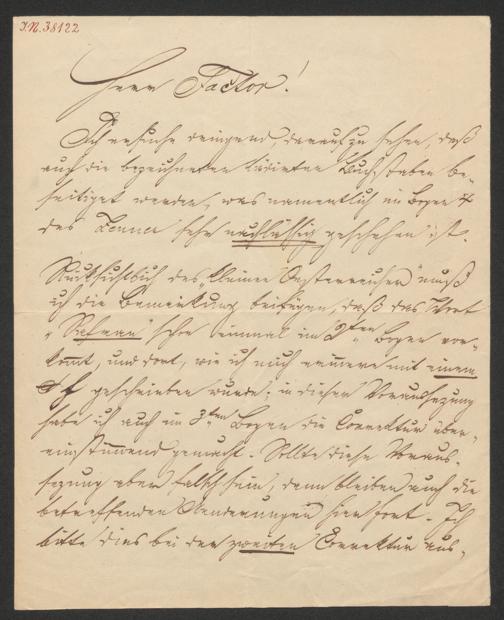 I.N. 38122
Herr Factor!
Ich ersuche dringend, darauf zu sehen, daß
auch die bezeichneten lädirten Buchstaben be-
seitiget werden, was namentlich im Bogen 4
des Zenner sehr nachlässig geschehen ist.
Rücksichtlich des „kleinen Oesterreicher" muß
ich die Bemerkung beifügen, daß das Wort
" schon einmal im 2ten Bogen vor-
kommt, und dort, wie ich mich erinnere mit einem
f geschrieben wurde; in dieser Voraussezung
habe ich auch im 3ten Bogen die Correktur über-
einstimmend gemacht. Sollte diese Voraus-
sezung aber falsch sein, dann bleiben auch die
betreffenden Aenderungen hier fort. Ich
bitte dies bei der zweiten Correktur aus-